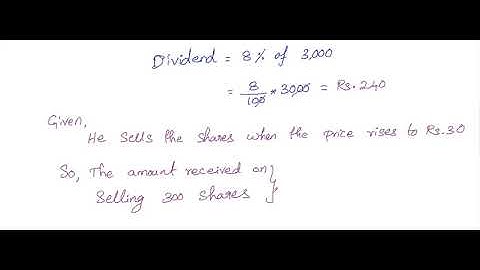 Dividend = 8% of 3,000
= 8/100 * 3000 = Rs.240
Given,
He sells the shares when the price rises to Rs.30
So, The amount received on
Selling 300 shares }